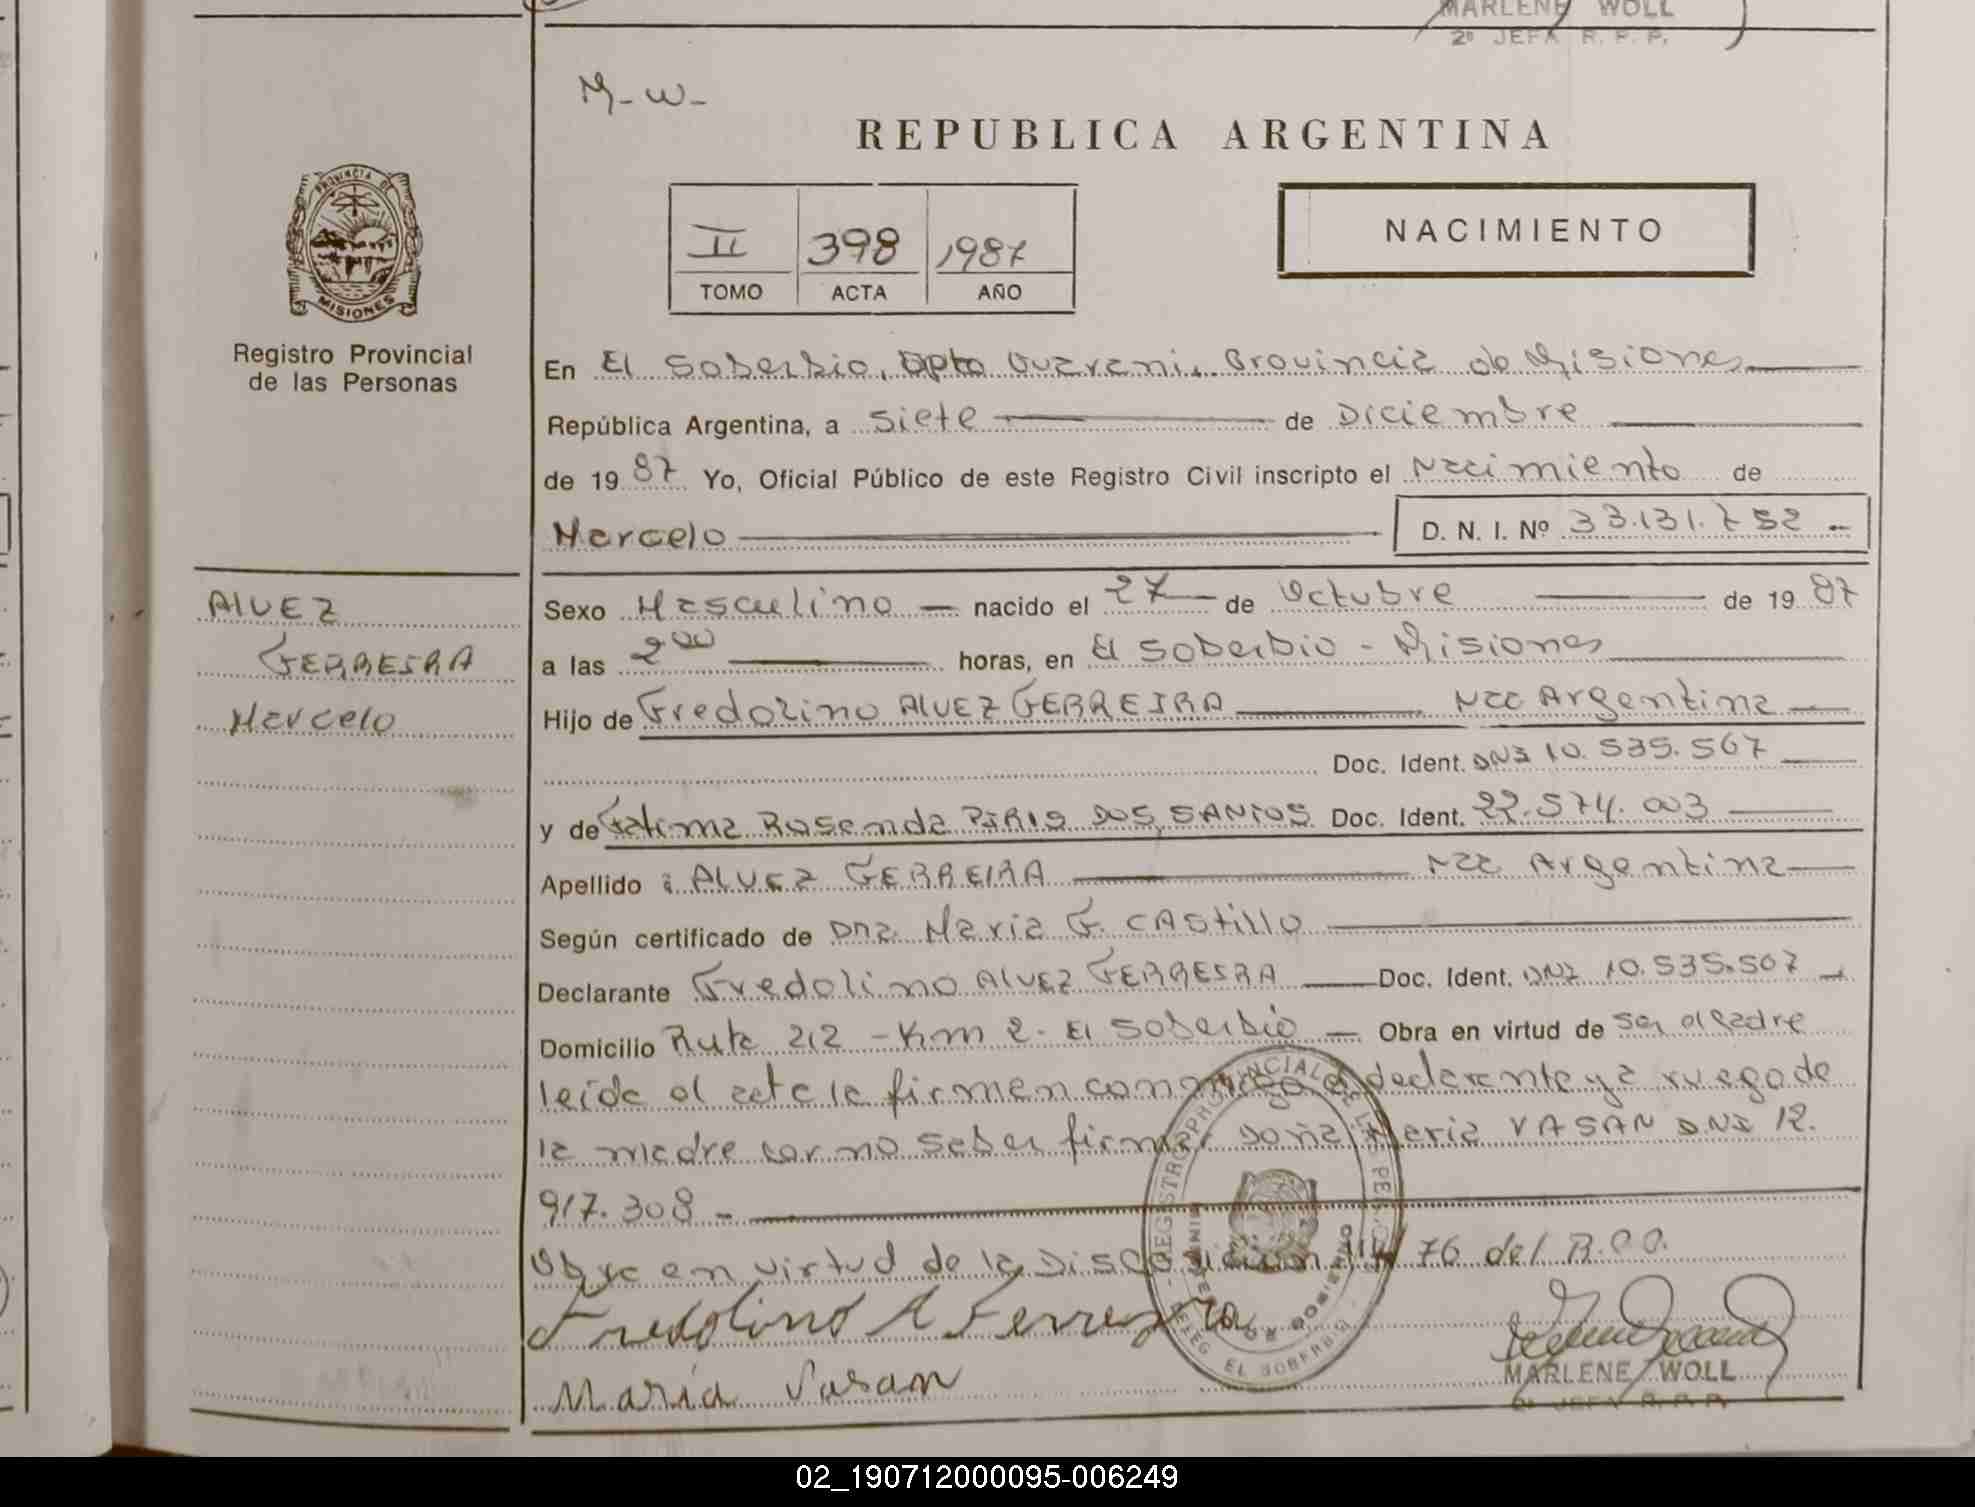 MARLENE WOLL
2º JEFA R. P. P.
M-W-
REPUBLICA ARGENTINA
PROVINCIA DE
MISIONES
Registro Provincial
de las Personas
II 398 1987
TOMO ACTA AÑO
NACIMIENTO
En El Soberbio, Dpto Guarani, Provincia de Misiones
República Argentina, a siete de Diciembre
de 1987 Yo, Oficial Público de este Registro Civil inscripto el Nacimiento de
Marcelo D. N. I. Nº 33.131.752
ALVEZ
FERREIRA
Marcelo
Sexo Masculino nacido el 27 de Octubre de 1987
a las 2 00 horas, en El Soberbio - Misiones
Hijo de Fredolino ALVEZ FERREIRA Nac Argentina
Doc. Ident. DNI 10.535.567
y de Fatima Rosenda PIRIS DOS SANTOS Doc. Ident. 22.574.003
Apellido: ALVEZ FERREIRA Nac Argentina
Según certificado de Dña. Maria F. CAStillo
Declarante Fredolino ALVEZ FERREIRA Doc. Ident. DNI 10.535.567
Domicilio Ruta 212 - Km 2 - El Soberbio Obra en virtud de ser el Padre
leída el acta la firman conmigo el declarante y a ruego de
la madre por no saber firmar Doña Maria VASAN DNI 12.
917.308 -
Obra en virtud de la Disposición 114/76 del R.P.P.
Fredolino A Ferreyra
María Vasan
REGISTRO PROVINCIAL DE LAS PERSONAS
DELEG. EL SOBERBIO
MINISTERIO DE GOBIERNO
MARLENE WOLL
2º JEFA R. P. P.
02_190712000095-006249